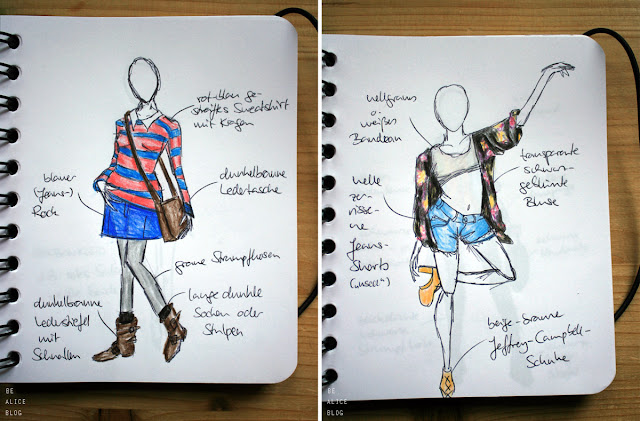 rot-blau ge-
streiftes Sweatshirt
mit Kragen
blauer
(Jeans-)
Rock
dunkelbraune
Ledertasche
graue Strumpfhosen
dunkelbraune
Lederstiefel
mit
Schnallen
lange dunkle
Socken oder
Stulpen
BE
ALICE
BLOG
hellgraues
o.
weißes
Bandeau
transparente
schwarz-
geblümte
Bluse
helle
zer-
risse-
ne
Jeans-
shorts
beige-braune
Jeffrey-Campbell-
Schuhe
BE
ALICE
BLOG